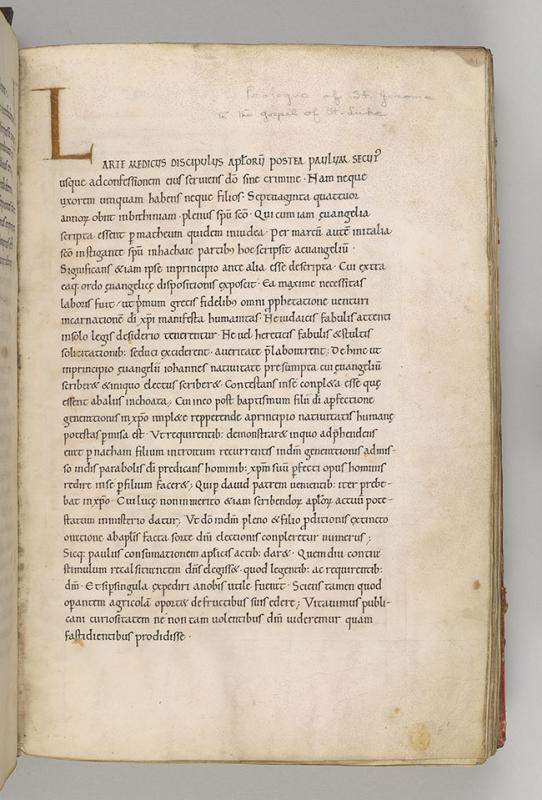 Prologue of St. Jerome
to the gospel of St. Luke
L
ARTE MEDICUS DISCIPULUS AP̅L̅ORU̅ POSTEA PAULUM SECUT᾽
usque adconfessionem eius seruiens do̅ sine crimine · Nam neque
uxorem umquam habens neque filios · Septuaginta quattuor
annoꝝ obiit inbithiniam · plenus spu̅ sco̅ · Qui cum iam ęuangelia
scripta essent ꝑ matheum quidem iniudea · Per marcu̅ aute̅ initalia
sco̅ instigante spu̅ inhachaie partibꝰ hoc scripsit aeuangeliu̅ ·
Significans & iam ipse inprincipio ante alia esse descripta · Cui extra
ea q ordo ęuangelicę dispositionis ęxposcit · Ea maxime necessitas
laboris fuit · ut p̅mum grecis fidelibꝰ omni ꝓphetatione uenturi
incarnatione̅ di̅ xp̅i manifesta humanitas · Ne iudaicis fabulis attenti
insolo legis desiderio tenerentur · Ne uel hereticis fabulis & stultis
sollicitationib: seduci excederent · aueritate p̅laborarent; Dehinc ut
inprincipio ęuangelii iohannes natiuitate presumpta cui ęuangeliu̅
scriber& & iniquo electus scriber& · Contestans inse co̅pl&a esse quę
essent abalus inchoata; Cui ineo post baptismum filii di̅ aꝑfectione
generationis inxp̅o impl&e reppetende aprincipio natiuitatis humanę
potestas p̅missa est · Ut requirentib: demonstrar& inquo adp̅hendens
erat ꝑ nacham filium introitum recurrentis indm̅ generationis admis-
so indis parabolis di̅ predicans hominib: xp̅m suu̅ ꝑfecti opus hominis
redire inse ꝑfilium facer&; Qui ꝑ dauid patrem uenientib: iter prebe-
bat inxp̅o · Cui lucę non inmerito & iam scribendoꝝ ap̅l̅oꝝ actuu̅ pote-
statum inministerio datur; Ut do̅ indm̅ pleno & filio ꝓditionis extincto
oratione abap̅l̅is facta sorte dni̅ electionis conpleretur numerus;
Sicq: paulus consummationem ap̅l̅icis actib: dar& · Quem diu contra
stimulum recalsitrantem dn̅s elegiss& · quod legentib: ac requirentib:
dm̅ · Et sipsingula expediri anobis utile fuerat · Sciens tamen quod
oꝑantem agricola̅ oport& defructibus suis edere; Vitauimus publi-
cam curiositatem ne non tam uolentibus dm̅ uideremur quam
fastidientibus prodidisse ·